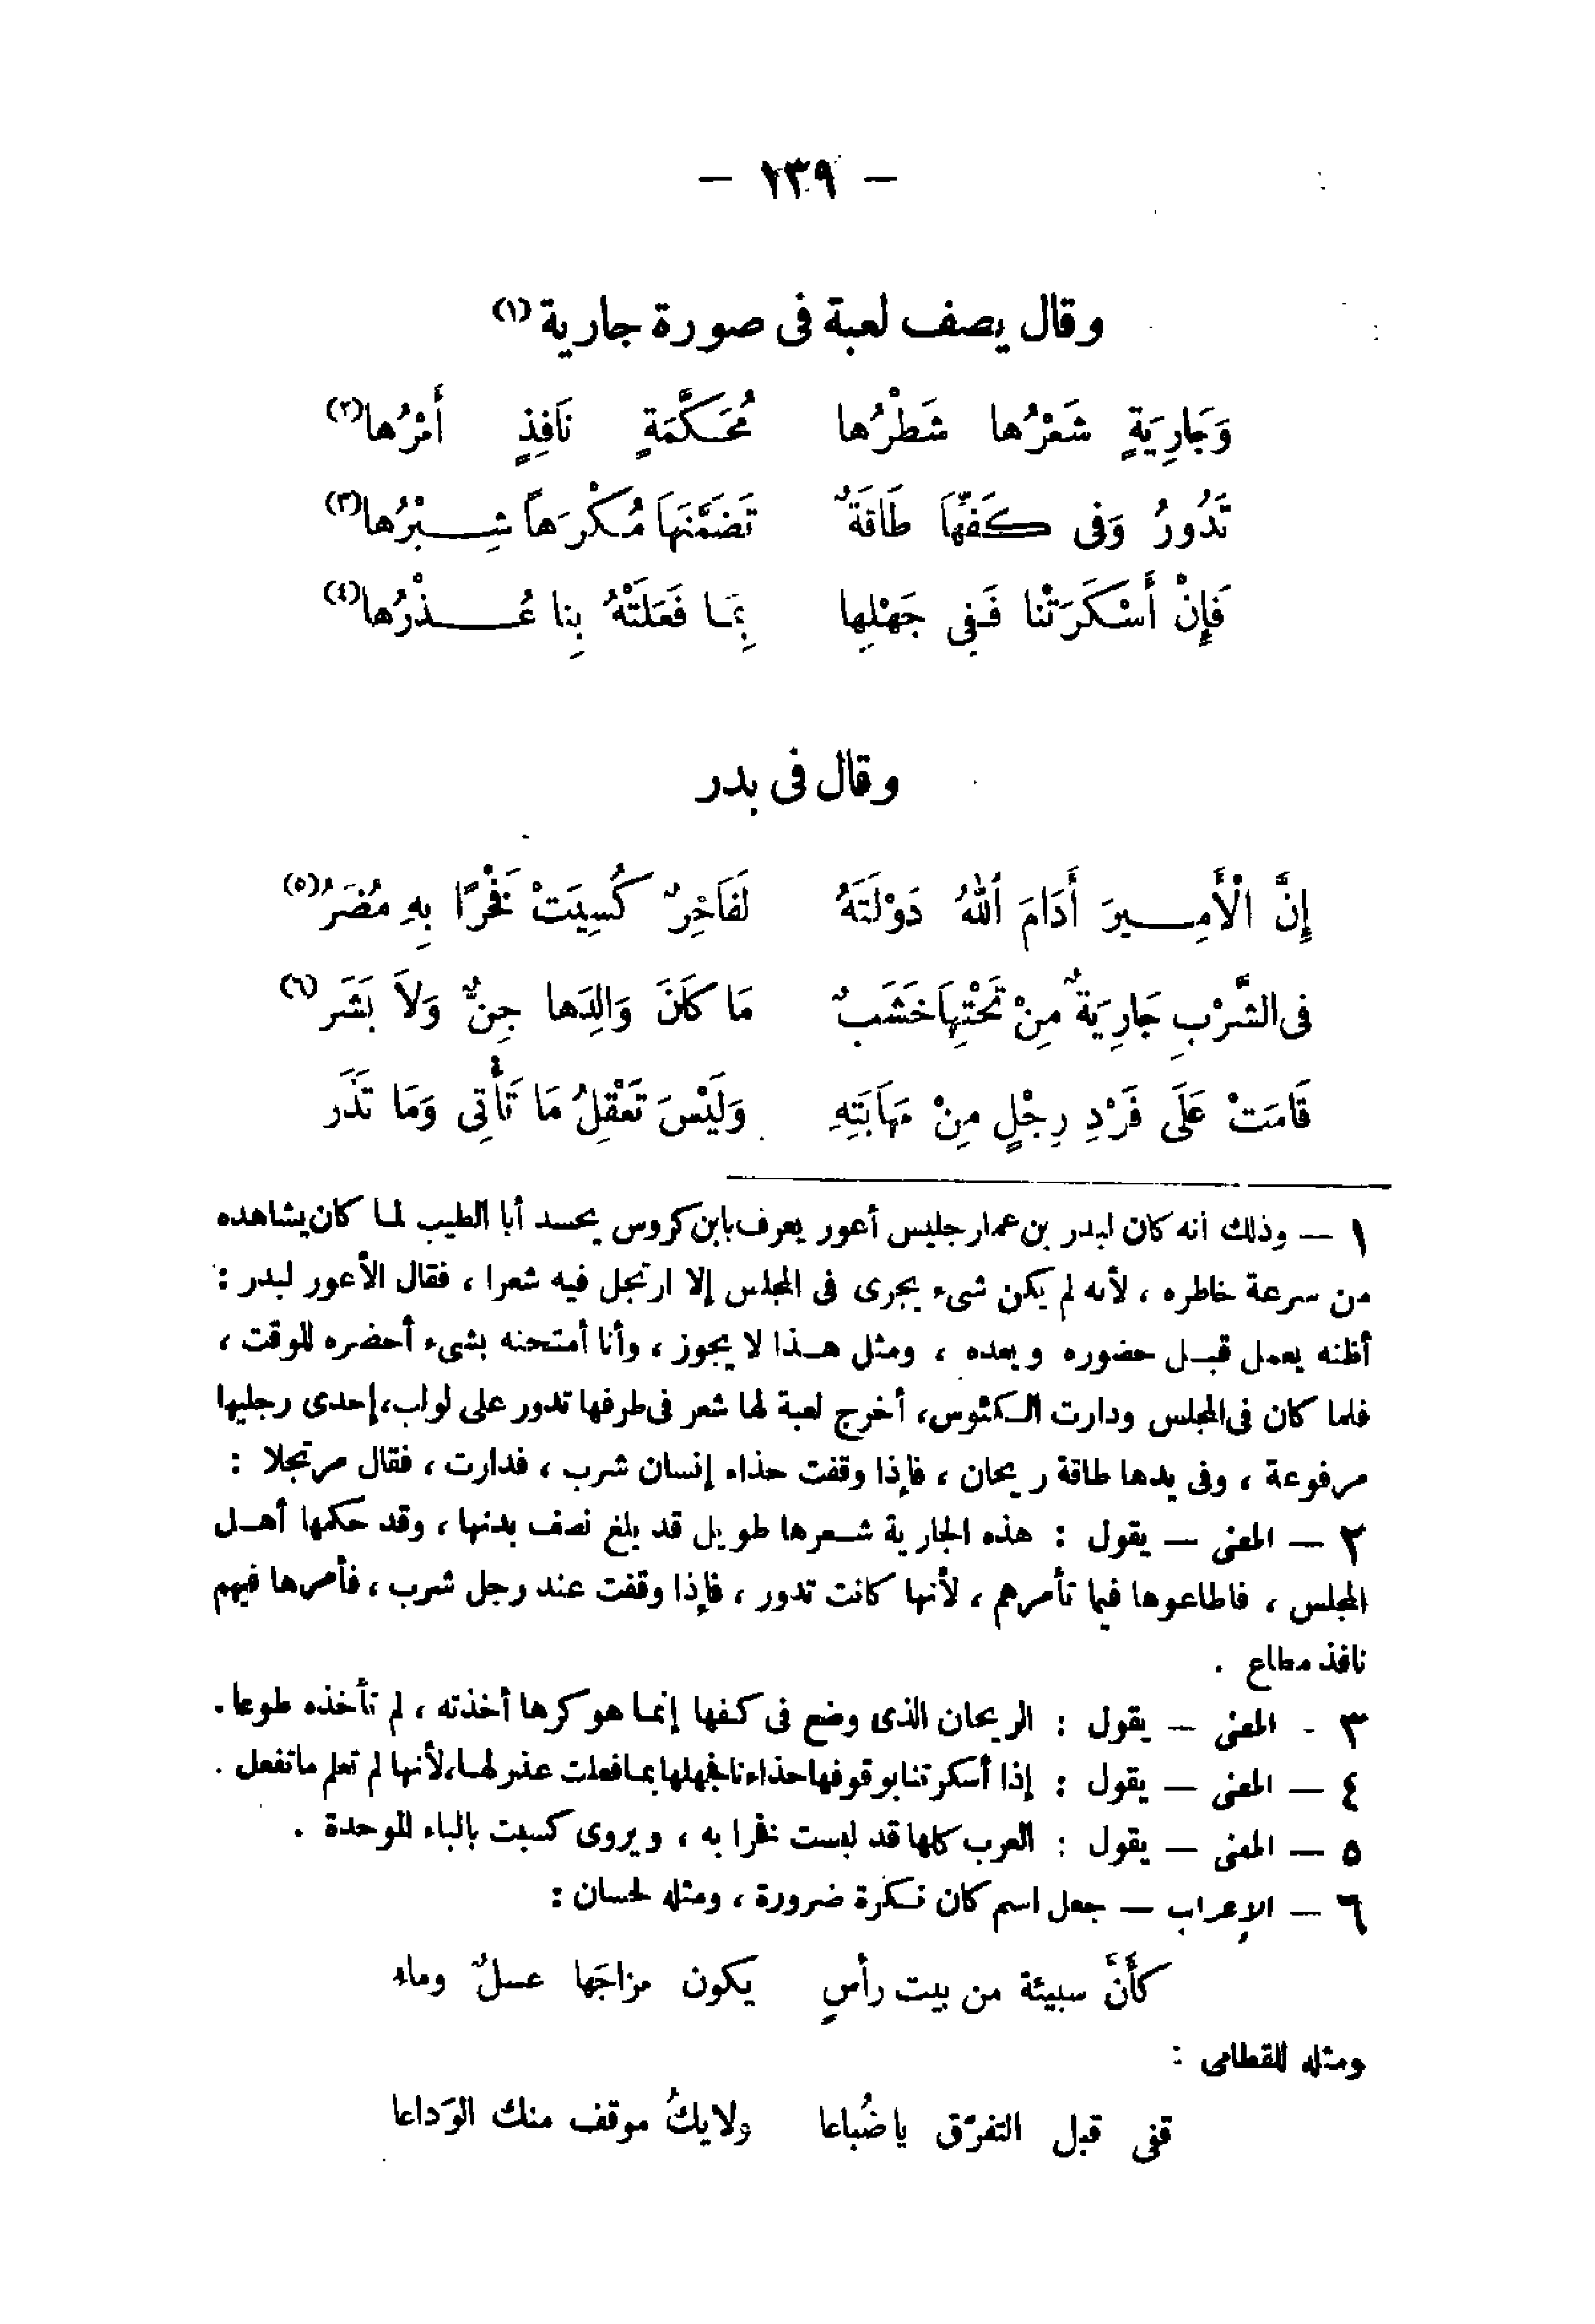 — ١٣٩ —
وقال يصف لعبة فى صورة جارية (١)
وَجَارِيَةٍ شَعْرُها شَطْرُها مُحَكَّمَةٍ نَافِذٍ أَمْرُها (٢)
تَدُورُ وَفى كَفِّهَا طَاقَةٌ تَضَمَّنَهَا مُكْرَهاً شِبْرُها (٣)
فَإِنْ أَسْكَرَتْنا فَفِى جَهْلِها بِمَا فَعَلَتْهُ بِنا عُذْرُها (٤)
وقال فى بدر
إِنَّ الْأَمِيرَ أَدَامَ اللهُ دَوْلَتَهُ لَفَاخِرٌ كُسِيَتْ فَخْرًا بِهِ مُضَرُ (٥)
فى الشَّرْبِ جَارِيَةٌ مِنْ تَحْتِهَا خَشَبٌ مَا كَانَ وَالِدَها جِنٌّ وَلاَ بَشَر (٦)
قَامَتْ عَلَى فَرْدِ رِجْلٍ مِنْ مَهَابَتِهِ وَلَيْسَ تَعْقِلُ مَا تَأْتِى وَمَا تَذَر
١ — وذلك أنه كان لبدر بن عمار جليس أعور يعرف بابن كروس يحسد أبا الطيب لما كان يشاهده
من سرعة خاطره ، لأنه لم يكن شىء يجرى فى المجلس إلا ارتجل فيه شعرا ، فقال الأعور لبدر :
أظنه يعمل قبل حضوره وبعده ، ومثل هذا لا يجوز ، وأنا أمتحنه بشىء أحضره للوقت ،
فلما كان فى المجلس ودارت الكئوس، أخرج لعبة لها شعر فى طرفها تدور على لولب، إحدى رجليها
مرفوعة ، وفى يدها طاقة ريحان ، فإذا وقفت حذاء إنسان شرب ، فدارت ، فقال مرتجلا :
٢ — المعنى — يقول : هذه الجارية شعرها طويل قد بلغ نصف بدنها ، وقد حكمها أهل
المجلس ، فاطاعوها فيما تأمرهم ، لأنها كانت تدور ، فإذا وقفت عند رجل شرب ، فأمرها فيهم
نافذ مطاع .
٣ - المعنى — يقول : الريحان الذى وضع فى كفها إنما هو كرها أخذته ، لم تأخذه طوعا .
٤ — المعنى — يقول : إذا أسكرتنا بوقوفها حذاءنا فجهلها بما فعلت عذر لها، لأنها لم تعلم ما تفعل .
٥ — المعنى — يقول : العرب كلها قد لبست فخرا به ، ويروى كسبت بالباء الموحدة .
٦ — الإعراب — جعل اسم كان نكرة ضرورة ، ومثله لحسان :
كأَنَّ سبيئة من بيت رأسٍ يكون مزاجَها عسلٌ وماء
ومثله للقطامى :
قفى قبل التفرّق ياضُباعا ولايكُ موقف منك الوَداعا